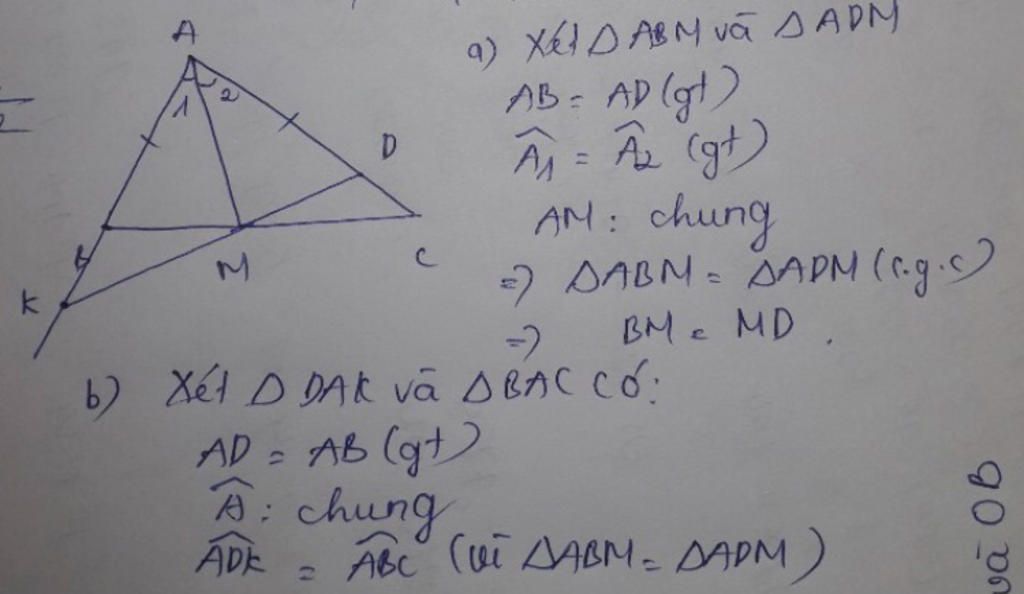 A
1 2
D
B
M
C
K
2
a) Xét △ABM và △ADM
AB = AD (gt)
Â1 = Â2 (gt)
AM : chung
=) △ABM = △ADM (c.g.c)
=) BM = MD .
b) Xét △DAK và △BAC có:
AD = AB (gt)
Â : chung
ADK̂ = ABĈ (vì △ABM = △ADM)
và OB